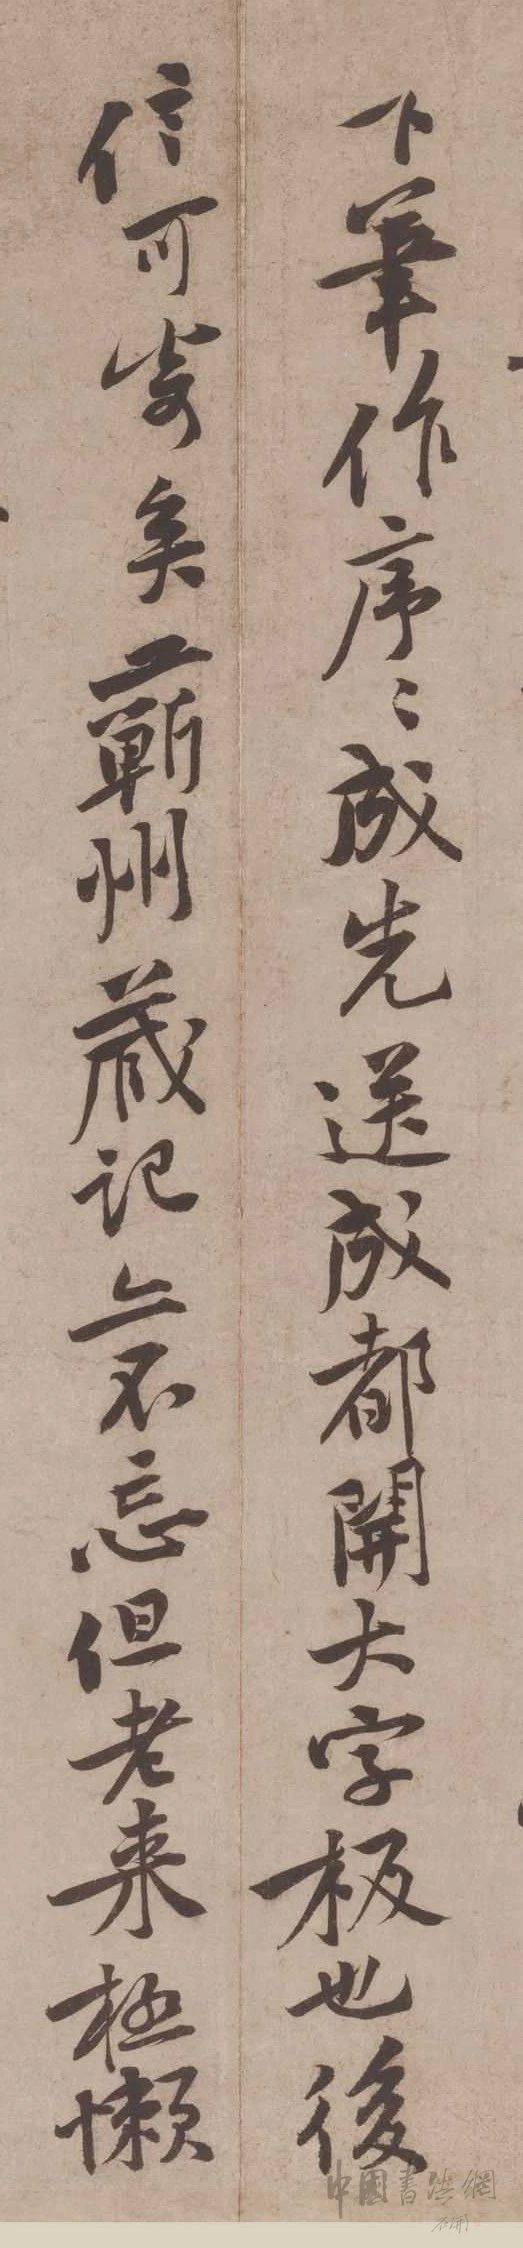 下筆作序〻成先送成都開大字板也後
信可寄矣蘄州藏記亦不忘但老来極懶
中國書法網